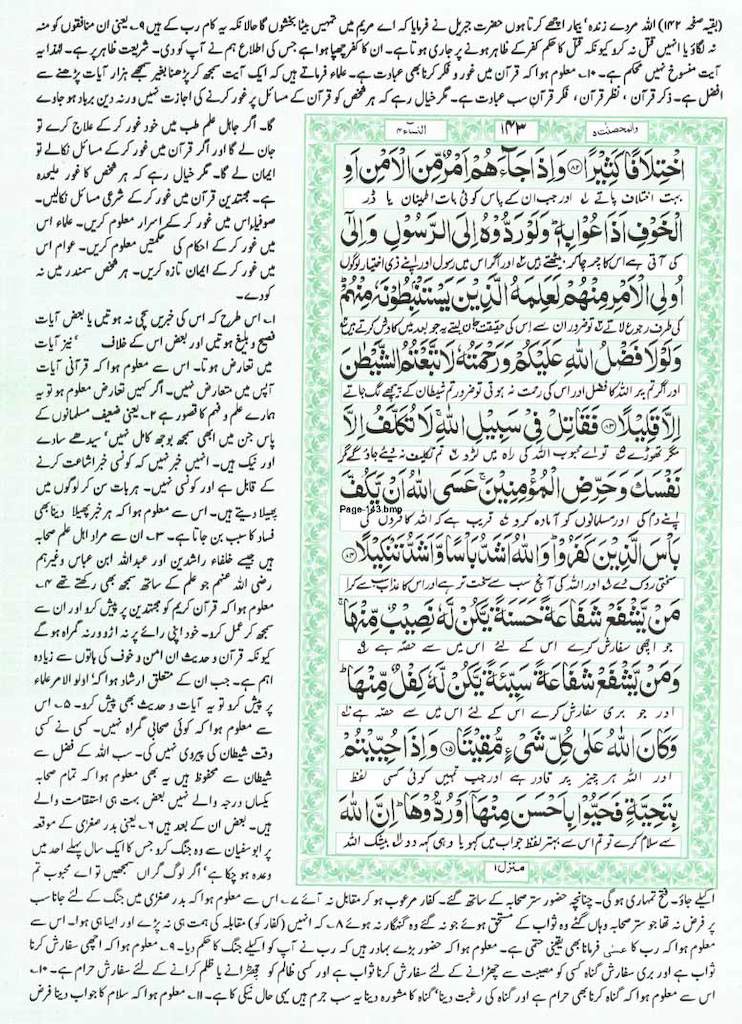 (بقیہ صفحہ ۱۴۲) اللہ مردے زندہ' بیمار اچھے کرتا ہوں حضرت جبریل نے فرمایا کہ اے مریم میں تمہیں بیٹا بخشوں گا حالانکہ یہ کام رب کے ہیں ۹۔ یعنی ان منافقوں کو منہ
نہ لگاؤ یا انہیں قتل نہ کرو کیونکہ قتل کا حکم کفر کے ظاہر ہونے پر جاری ہوتا ہے۔ ان کا کفر چھپا ہوا ہے جس کی اطلاع ہم نے آپ کو دی۔ شریعت ظاہر پر ہے۔ لہٰذا یہ
آیت منسوخ نہیں محکم ہے۔ ۱۰۔ معلوم ہوا کہ قرآن میں غور و فکر کرنا بھی عبادت ہے۔ علماء فرماتے ہیں کہ ایک آیت سمجھ کر پڑھنا بغیر سمجھے ہزار آیات پڑھنے سے
افضل ہے۔ ذکر قرآن، نظر قرآن، فکر قرآن سب عبادت ہے۔ مگر خیال رہے کہ ہر شخص کو قرآن کے مسائل پر غور کرنے کی اجازت نہیں ورنہ دین برباد ہو جاوے
گا۔ اگر جاہل علم طب میں خود غور کر کے علاج کرے تو
جان لے گا اور اگر قرآن میں غور کر کے مسائل نکالے تو
ایمان لے گا۔ مگر خیال رہے کہ ہر شخص کا غور علیحدہ
ہے۔ مجتہدین قرآن میں غور کر کے شرعی مسائل نکالیں۔
صوفیاء اس میں غور کر کے اسرار معلوم کریں۔ علماء اس
میں غور کر کے احکام کی حکمتیں معلوم کریں۔ عوام اس
میں غور کر کے ایمان تازہ کریں۔ ہر شخص سمندر میں نہ
کودے۔
۱۔ اس طرح کہ اس کی خبریں سچی نہ ہوتیں یا بعض آیات
فصیح و بلیغ ہوتیں اور بعض اس کے خلاف ' نیز آیات
میں تعارض ہوتا۔ اس سے معلوم ہوا کہ قرآنی آیات
آپس میں متعارض نہیں۔ اگر کہیں تعارض معلوم ہو تو یہ
ہمارے علم و فہم کا قصور ہے ۲۔ یعنی ضعیف مسلمانوں کے
پاس جن میں ابھی سمجھ بوجھ کامل نہیں' سیدھے سادے
اور نیک ہیں۔ انہیں خبر نہیں کہ کونسی خبر اشاعت کرنے
کے قابل ہے اور کونسی نہیں۔ ہر بات سن کر لوگوں میں
پھیلا دیتے ہیں۔ اس سے معلوم ہوا کہ ہر خبر پھیلا دینا بھی
فساد کا سبب بن جاتا ہے۔ ۳۔ ان سے مراد اہل علم صحابہ
ہیں جیسے خلفاء راشدین اور عبداللہ ابن عباس وغیرہم
رضی اللہ عنہم جو علم کے ساتھ سمجھ بھی رکھتے تھے ۴۔
معلوم ہوا کہ قرآن کریم کو مجتہدین پر پیش کرو اور ان سے
سمجھ کر عمل کرو۔ خود اپنی رائے پر نہ اڑو ورنہ گمراہ ہو گے
کیونکہ قرآن و حدیث ان امن و خوف کی باتوں سے زیادہ
اہم ہے۔ جب ان کے متعلق ارشاد ہوا کہ اولو الامر علماء
پر پیش کرو تو یہ آیات و حدیث بھی پیش کرو۔ ۵۔ اس
سے معلوم ہوا کہ کوئی صحابی گمراہ نہیں۔ کسی نے کسی
وقت شیطان کی پیروی نہیں کی۔ سب اللہ کے فضل سے
شیطان سے محفوظ ہیں یہ بھی معلوم ہوا کہ تمام صحابہ
یکساں درجہ والے نہیں بعض بہت ہی استقامت والے
ہیں۔ بعض ان کے بعد ہیں ۶۔ یعنی بدر صغریٰ کے موقعہ
پر ابوسفیان سے وہ جنگ کرو جس کا ایک سال پہلے احد میں
وعدہ ہو چکا ہے' اگر لوگ گراں سمجھیں تو اے محبوب تم
والمحصنت ۵ ۱۴۳ النساء ۴
اخْتِلَافًا كَثِيْرًا ۝۸۲ وَاِذَا جَآءَهُمْ اَمْرٌ مِّنَ الْاَمْنِ اَوِ
بہت اختلاف پاتے ۱ اور جب ان کے پاس کوئی بات اطمینان یا ڈر
الْخَوْفِ اَذَاعُوْا بِهٖ ۚ وَلَوْ رَدُّوْهُ اِلَى الرَّسُوْلِ وَاِلٰۤى
کی آتی ہے اس کا چرچا کر بیٹھتے ہیں ۲ اور اگر اس میں رسول اور اپنے ذی اختیار لوگوں
اُولِى الْاَمْرِ مِنْهُمْ لَعَلِمَهُ الَّذِيْنَ يَسْتَنْۢبِطُوْنَهٗ مِنْهُمْ ؕ
کی طرف رجوع لاتے ۳ تو ضرور ان سے اس کی حقیقت جان لیتے یہ جو بعد میں کاوش کرتے ہیں ۴
وَلَوْلَا فَضْلُ اللّٰهِ عَلَيْكُمْ وَرَحْمَتُهٗ لَاتَّبَعْتُمُ الشَّيْطٰنَ
اور اگر تم پر اللہ کا فضل اور اس کی رحمت نہ ہوتی تو ضرور تم شیطان کے پیچھے لگ جاتے
اِلَّا قَلِيْلًا ۝۸۳ فَقَاتِلْ فِىْ سَبِيْلِ اللّٰهِ ۚ لَا تُكَلَّفُ اِلَّا
مگر تھوڑے ۵ تو اے محبوب اللہ کی راہ میں لڑو ۶ تم تکلیف نہ دیئے جاؤ گے مگر
نَفْسَكَ وَحَرِّضِ الْمُؤْمِنِيْنَ ۚ عَسَى اللّٰهُ اَنْ يَّكُفَّ
Page-143.bmp
اپنے دم کی اور مسلمانوں کو آمادہ کرو ۷ قریب ہے کہ اللہ کافروں کی
بَاْسَ الَّذِيْنَ كَفَرُوْا ؕ وَاللّٰهُ اَشَدُّ بَاْسًا وَّاَشَدُّ تَنْكِيْلًا ۝۸۴
سختی روک دے ۸ اور اللہ کی آنچ سب سے سخت تر ہے اور اس کا عذاب سب سے کڑا
مَنْ يَّشْفَعْ شَفَاعَةً حَسَنَةً يَّكُنْ لَّهٗ نَصِيْبٌ مِّنْهَا ۚ
جو اچھی سفارش کرے اس کے لئے اس میں سے حصہ ہے ۹
وَمَنْ يَّشْفَعْ شَفَاعَةً سَيِّئَةً يَّكُنْ لَّهٗ كِفْلٌ مِّنْهَا ؕ
اور جو بری سفارش کرے اس کے لئے اس میں سے حصہ ہے ۱۰
وَكَانَ اللّٰهُ عَلٰى كُلِّ شَىْءٍ مُّقِيْتًا ۝۸۵ وَاِذَا حُيِّيْتُمْ
اور اللہ ہر چیز پر قادر ہے اور جب تمہیں کوئی کسی لفظ
بِتَحِيَّةٍ فَحَيُّوْا بِاَحْسَنَ مِنْهَاۤ اَوْ رُدُّوْهَا ؕ اِنَّ اللّٰهَ
سے سلام کرے تو تم اس سے بہتر لفظ جواب میں کہو یا وہی کہہ دو ۱۱ بیشک اللہ
منزل ۱
اکیلے جاؤ۔ فتح تمہاری ہو گی۔ چنانچہ حضور ستر صحابہ کے ساتھ گئے۔ کفار مرعوب ہو کر مقابل نہ آئے ۷۔ اس سے معلوم ہوا کہ بدر صغریٰ میں جنگ کے لئے جانا سب
پر فرض نہ تھا جو ستر صحابہ وہاں گئے وہ ثواب کے مستحق ہوئے جو نہ گئے وہ گنہگار نہ ہوئے ۸۔ کہ انہیں (کفار کو) مقابلہ کی ہمت ہی نہ پڑے اور ایسا ہی ہوا۔ اس سے
معلوم ہوا کہ رب کا عسٰی فرمانا بھی یقینی حتمی ہے۔ معلوم ہوا کہ حضور بڑے بہادر ہیں کہ رب نے آپ کو اکیلے جنگ کا حکم دیا۔ ۹۔ معلوم ہوا کہ اچھی سفارش کرنا
ثواب ہے اور بری سفارش گناہ کسی کو مصیبت سے چھڑانے کے لئے سفارش کرنا ثواب ہے اور کسی ظالم کو چھڑانے یا ظلم کرانے کے لئے سفارش حرام ہے۔ ۱۰۔
اس سے معلوم ہوا کہ گناہ کرنا بھی حرام ہے اور گناہ کی رغبت دینا' گناہ کا مشورہ دینا یہ سب جرم ہیں یہی حال نیکی کا ہے۔ ۱۱۔ معلوم ہوا کہ سلام کا جواب دینا فرض